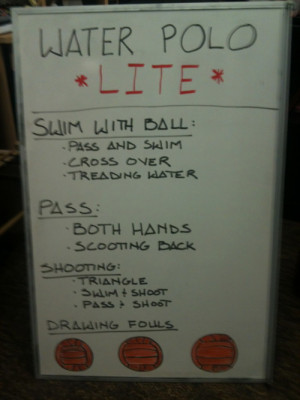 WATER POLO
*LITE*
SWIM WITH BALL:
· PASS AND SWIM
· CROSS OVER
· TREADING WATER
PASS:
· BOTH HANDS
· SCOOTING BACK
SHOOTING:
· TRIANGLE
· SWIM + SHOOT
· PASS + SHOOT
DRAWING FOULS